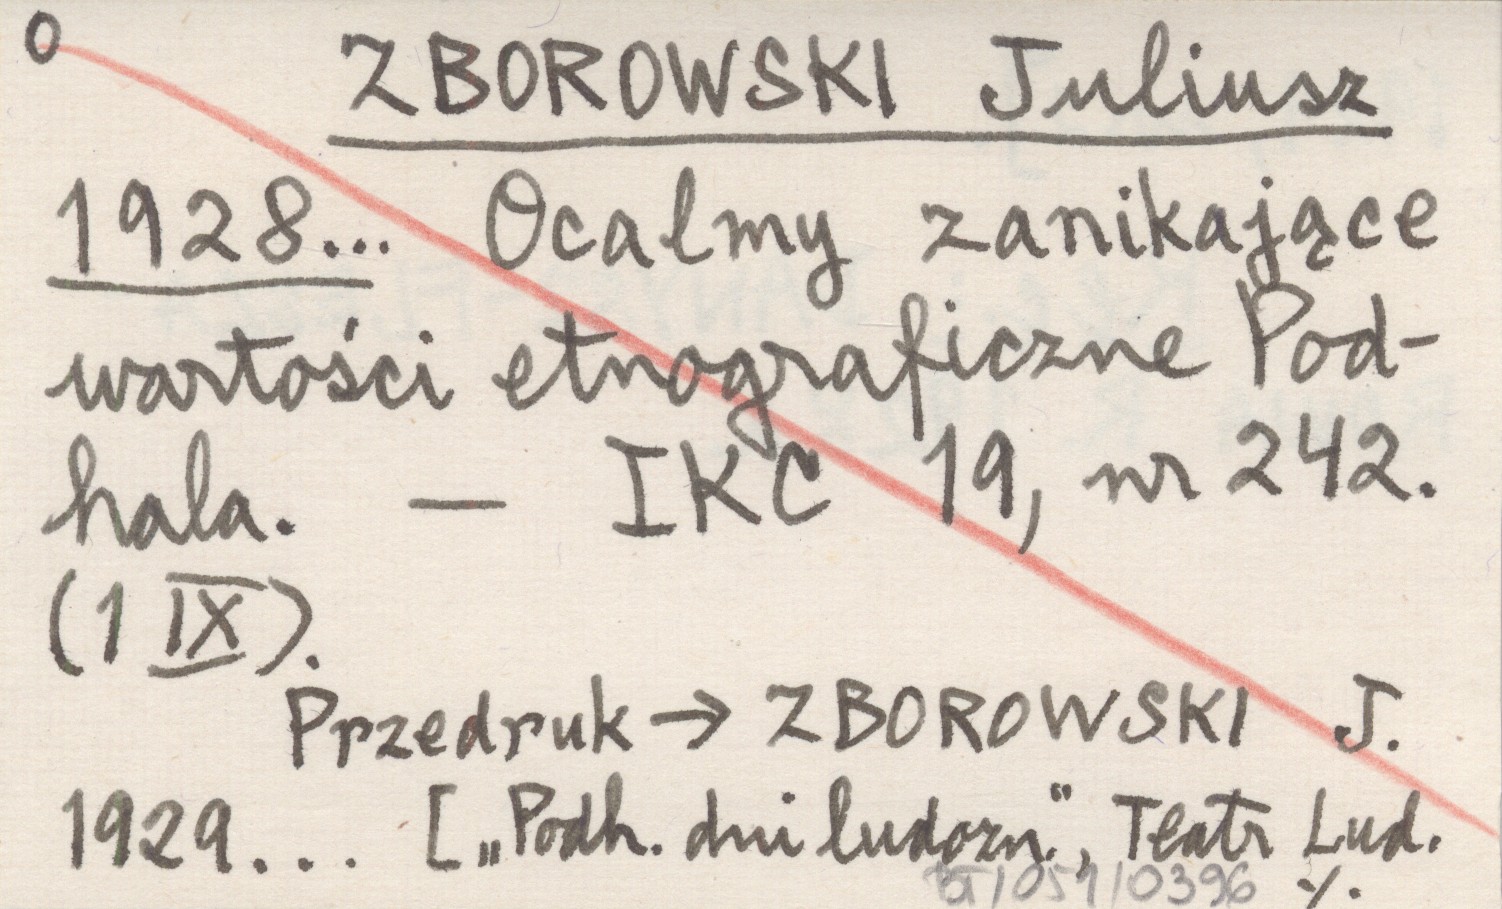 O
ZBOROWSKI Juliusz
1928... Ocalmy zanikające
wartości etnograficzne Pod-
hala. — IKC 19, nr 242.
(1 IX).
Przedruk → ZBOROWSKI J.
1929... [„Podh. dni ludozn.", Teatr Lud.
BT/051/0396 ./.